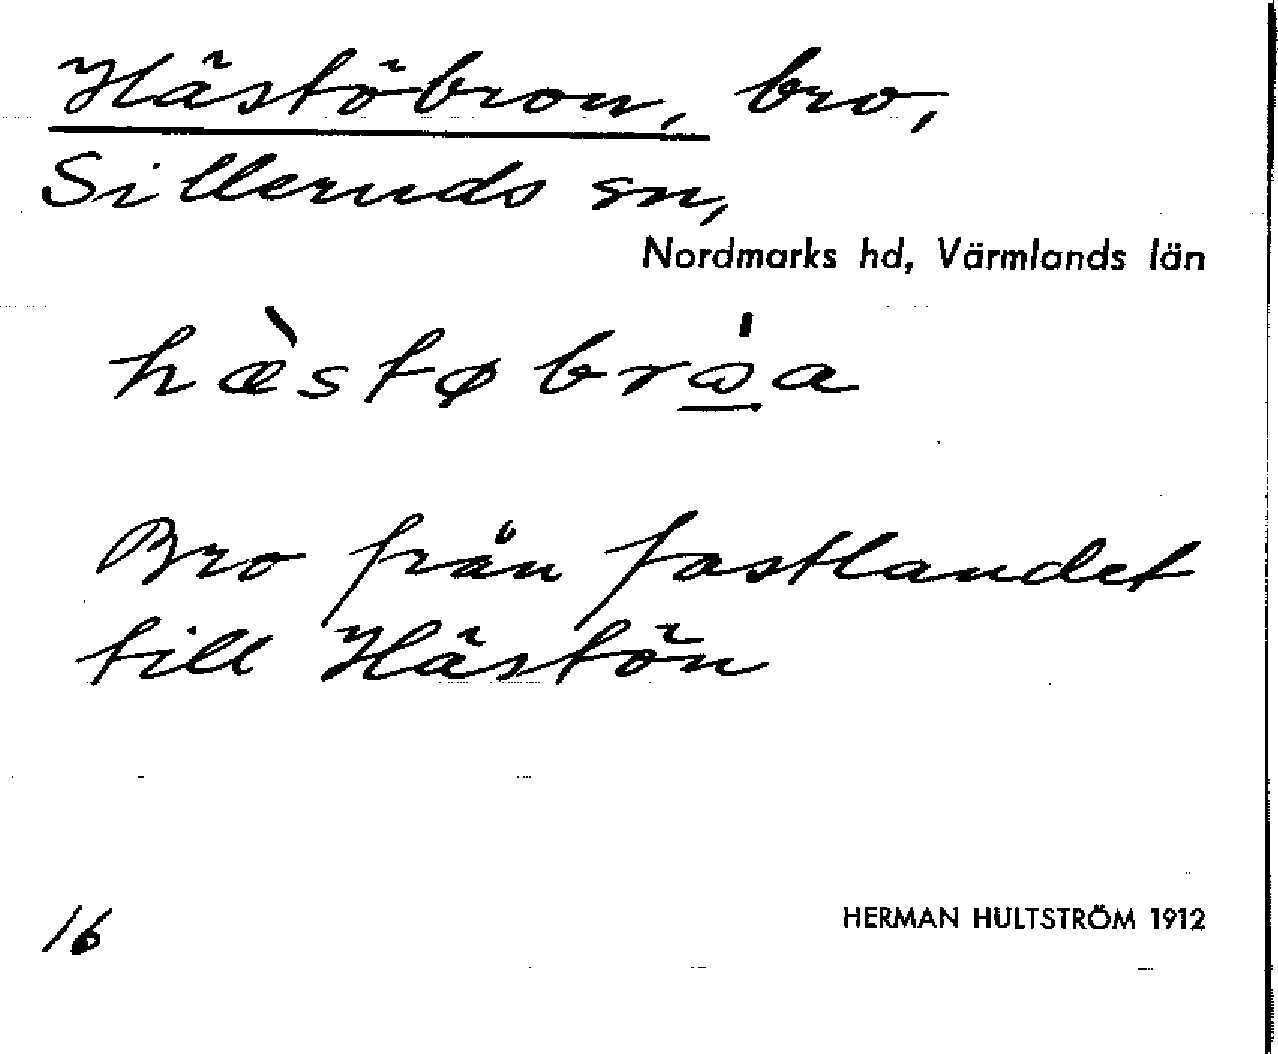 Hästöbron, bro,
Silleruds sn,
Nordmarks hd, Värmlands län
hæ̀støbrώ̲a
Bro från fastlandet
till Hästön
16
HERMAN HULTSTRÖM 1912